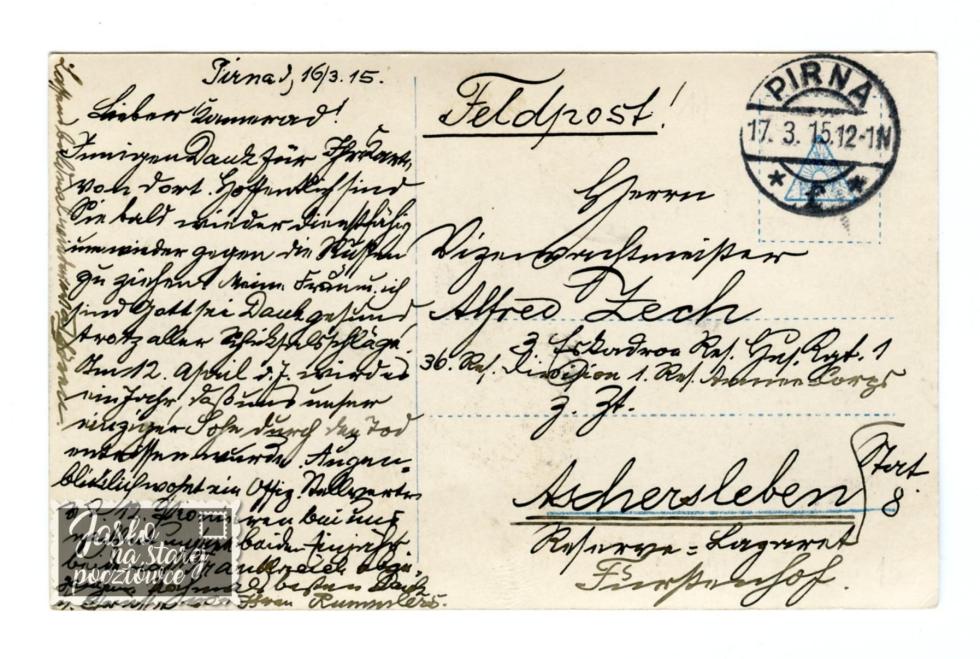 Pirna d, 16/3. 15.
Lieber Kamerad!
Innigen Dank für Ihre Karte
von dort. Hoffentlich sind
Sie bald wieder dienstfähig
um wieder gegen die Russen
zu ziehen. Meine Frau u. ich
sind Gott sei Dank gesund
trotz aller Schicksalsschläge.
Am 12. April d. J. wird es
ein Jahr, daß uns unser
einziger Sohn durch den Tod
entrissen wurde. Augen=
blicklich wohnt ein Offiz. Stellvertr.
12. Pionieren bei uns
beide
besten Dank
Rummlers.
Feldpost!
Herrn
Vizewachtmeister
Alfred Zech
3. Eskadron Res. Hus. Rgt. 1
36. Res. Division 1. Res. Armee Corps
z. Zt.
Aschersleben
Stat.
8.
Reserve=Lazaret
Fürstenhof.
PIRNA
17. 3. 15. 12-1N
* f *
Jaśko
na starej
pocztówce